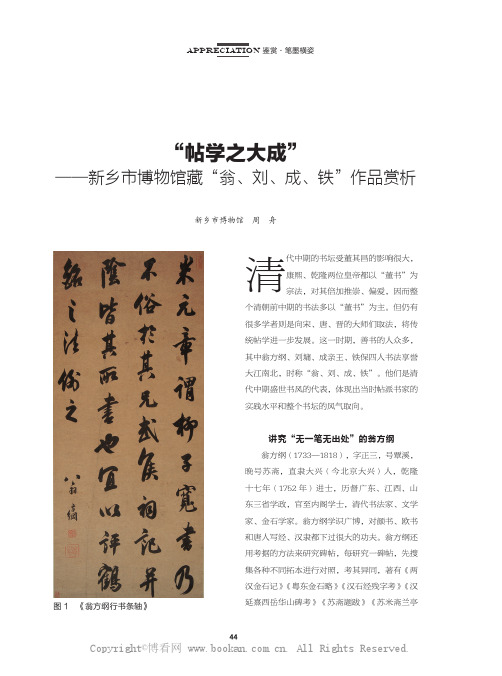 APPRECIATION 鉴赏·笔墨横姿
“帖学之大成”
——新乡市博物馆藏“翁、刘、成、铁”作品赏析
新乡市博物馆 周 舟
米元章謂柳子寬書乃
不俗於其兄武侯祠記并
陰皆其所書也宜以評鶴
銘之法例之
翁方綱
图 1 《翁方纲行书条轴》
清代中期的书坛受董其昌的影响很大，
康熙、乾隆两位皇帝都以“董书”为
宗法，对其倍加推崇、偏爱，因而整
个清朝前中期的书法多以“董书”为主。但仍有
很多学者则是向宋、唐、晋的大师们取法，将传
统帖学进一步发展。这一时期，善书的人众多，
其中翁方纲、刘墉、成亲王、铁保四人书法享誉
大江南北，时称“翁、刘、成、铁”。他们是清
代中期盛世书风的代表，体现出当时帖派书家的
实践水平和整个书坛的风气取向。
讲究“无一笔无出处”的翁方纲
翁方纲（1733—1818），字正三，号覃溪，
晚号苏斋，直隶大兴（今北京大兴）人，乾隆
十七年（1752 年）进士，历督广东、江西、山
东三省学政，官至内阁学士，清代书法家、文学
家、金石学家。翁方纲学识广博，对颜书、欧书
和唐人写经、汉隶都下过很大的功夫。翁方纲还
用考据的方法来研究碑帖，每研究一碑帖，先搜
集各种不同拓本进行对照，考其异同，著有《两
汉金石记》《粤东金石略》《汉石经残字考》《汉
延熹西岳华山碑考》《苏斋题跋》《苏米斋兰亭
44
Copyright©博看网 www.bookan.com.cn. All Rights Reserved.